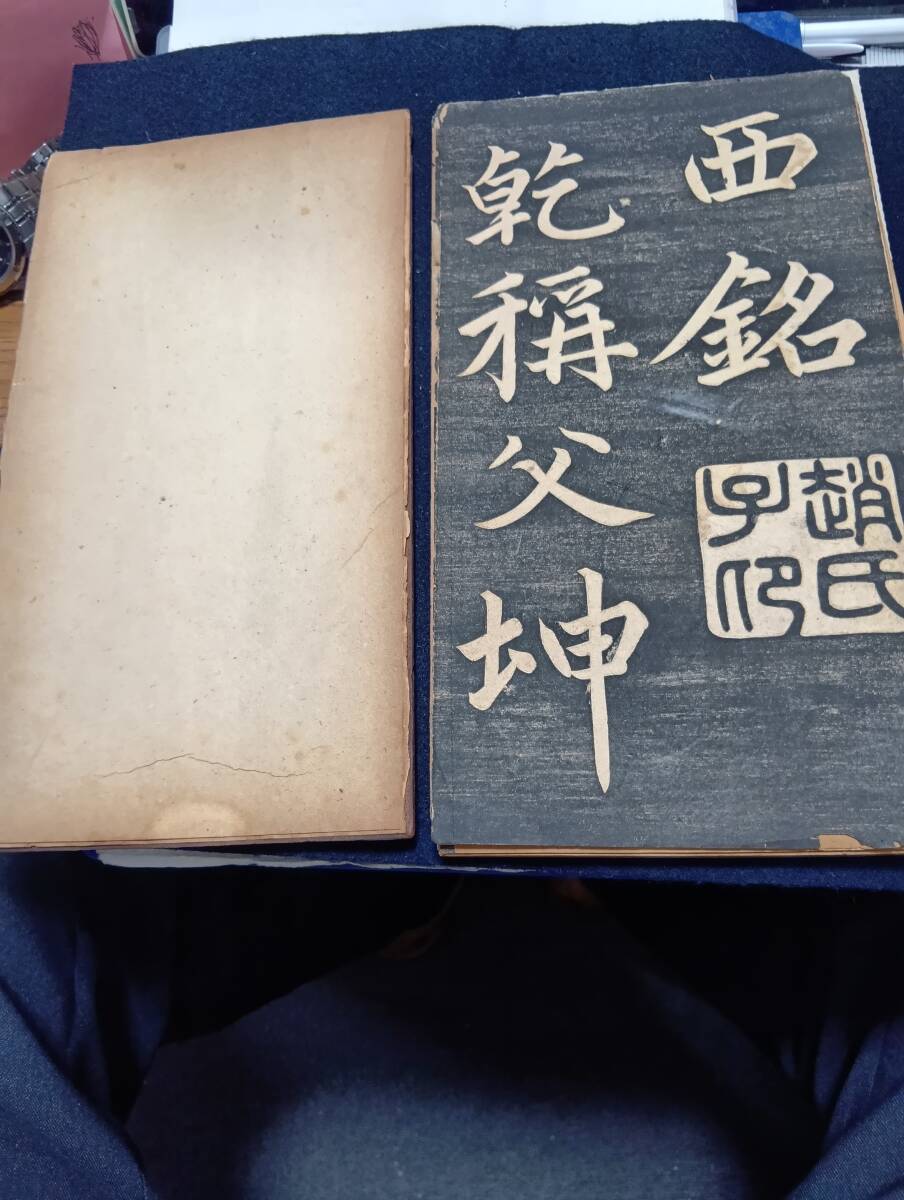 西銘
趙氏
子印
乾稱父坤